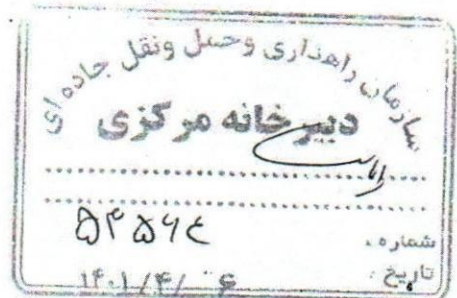 سازمان راهداری وحمل ونقل جاده ای
دبیرخانه مرکزی
شماره : ۵۴۵۶۴
تاریخ : ۱۴۰۱/۴/ ۶